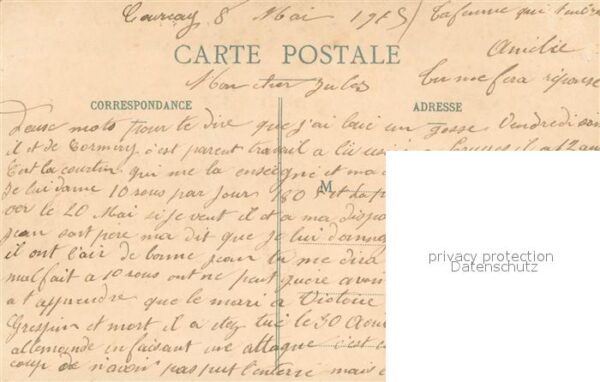 Courcay 8 Mai 1915 / Ta femme qui t'embr
CARTE POSTALE
Amélie
Mon cher Jules
tu me fera réponse
CORRESPONDANCE
ADRESSE
Deux mots pour te dire que j'ai loué un gosse Vendredi soir
il et de Cormery c'est parent travail a l'usi il a 12 an
c'est la courtin qui me la enseigné et ma d
M
Je lui dame 10 sous par jour 180 f et la f
ver le 20 Mai si je veut il et a ma dispo
Jean sont pere ma dit que je lui
il ont l'air de bonne Jean tu me dira
mal fait a 10 sous ont ne peut guère avoir
a t'apprendre que le mari a Victoire
Grespin et mort il a étez tué le 30 Aou
allemande in faisant une attaque c'est
coup de n'avoir pas put l'enterré mais
privacy protection
Datenschutz